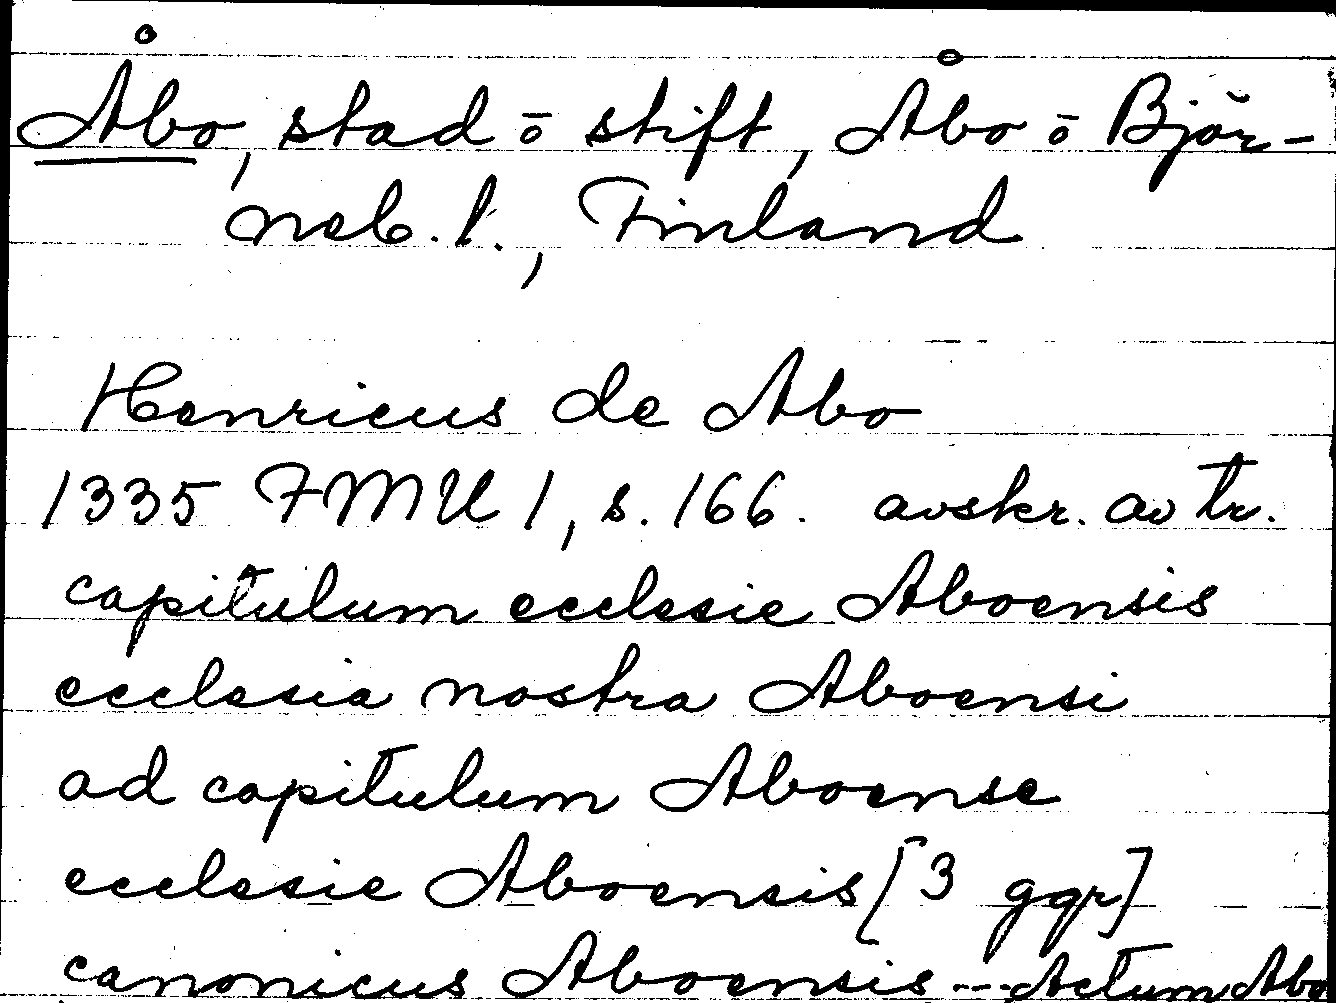 Åbo, stad o stift, Åbo o Björ-
neb. l., Finland
Henricus de Abo
1335 FMU 1, s. 166. avskr. av tr.
capitulum ecclesie Aboensis
ecclesia nostra Aboensi
ad capitulum Aboense
ecclesie Aboensis [3 ggr]
canonicus Aboensis --- Actum Abo